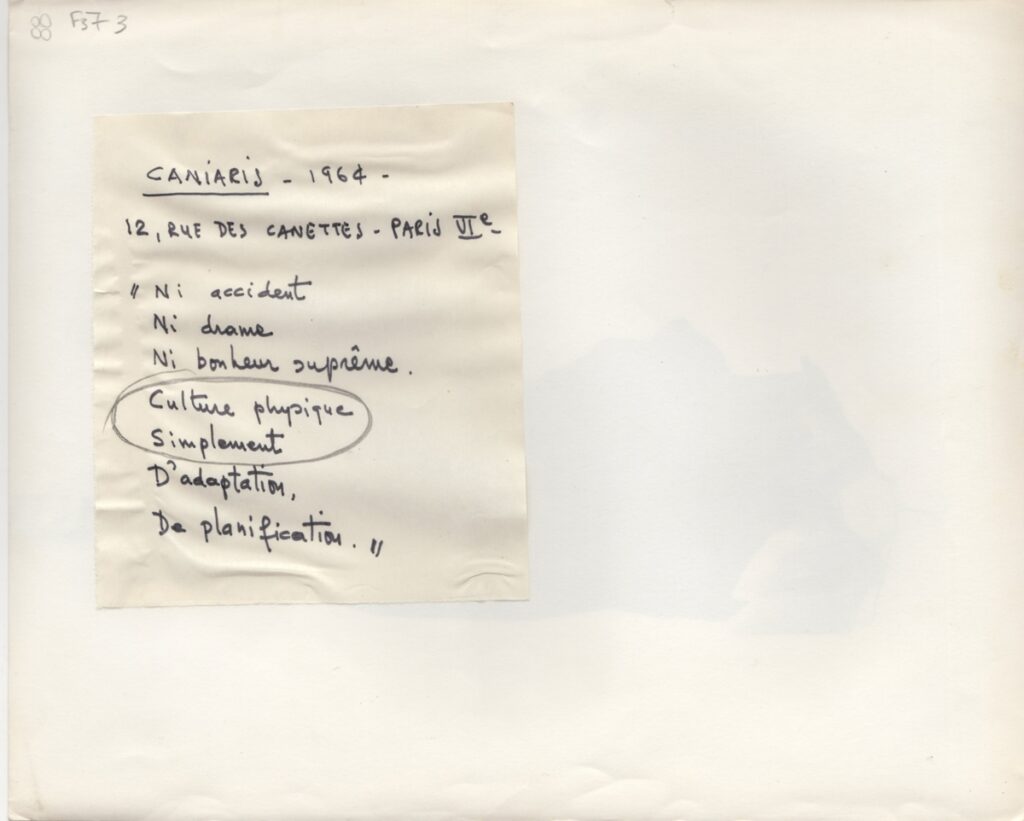 F37 3
CANIARIS - 1964 -
12, RUE DES CANETTES - PARIS VIe -
" Ni accident
Ni drame
Ni bonheur suprême.
Culture physique
Simplement
D'adaptation,
De planification. "